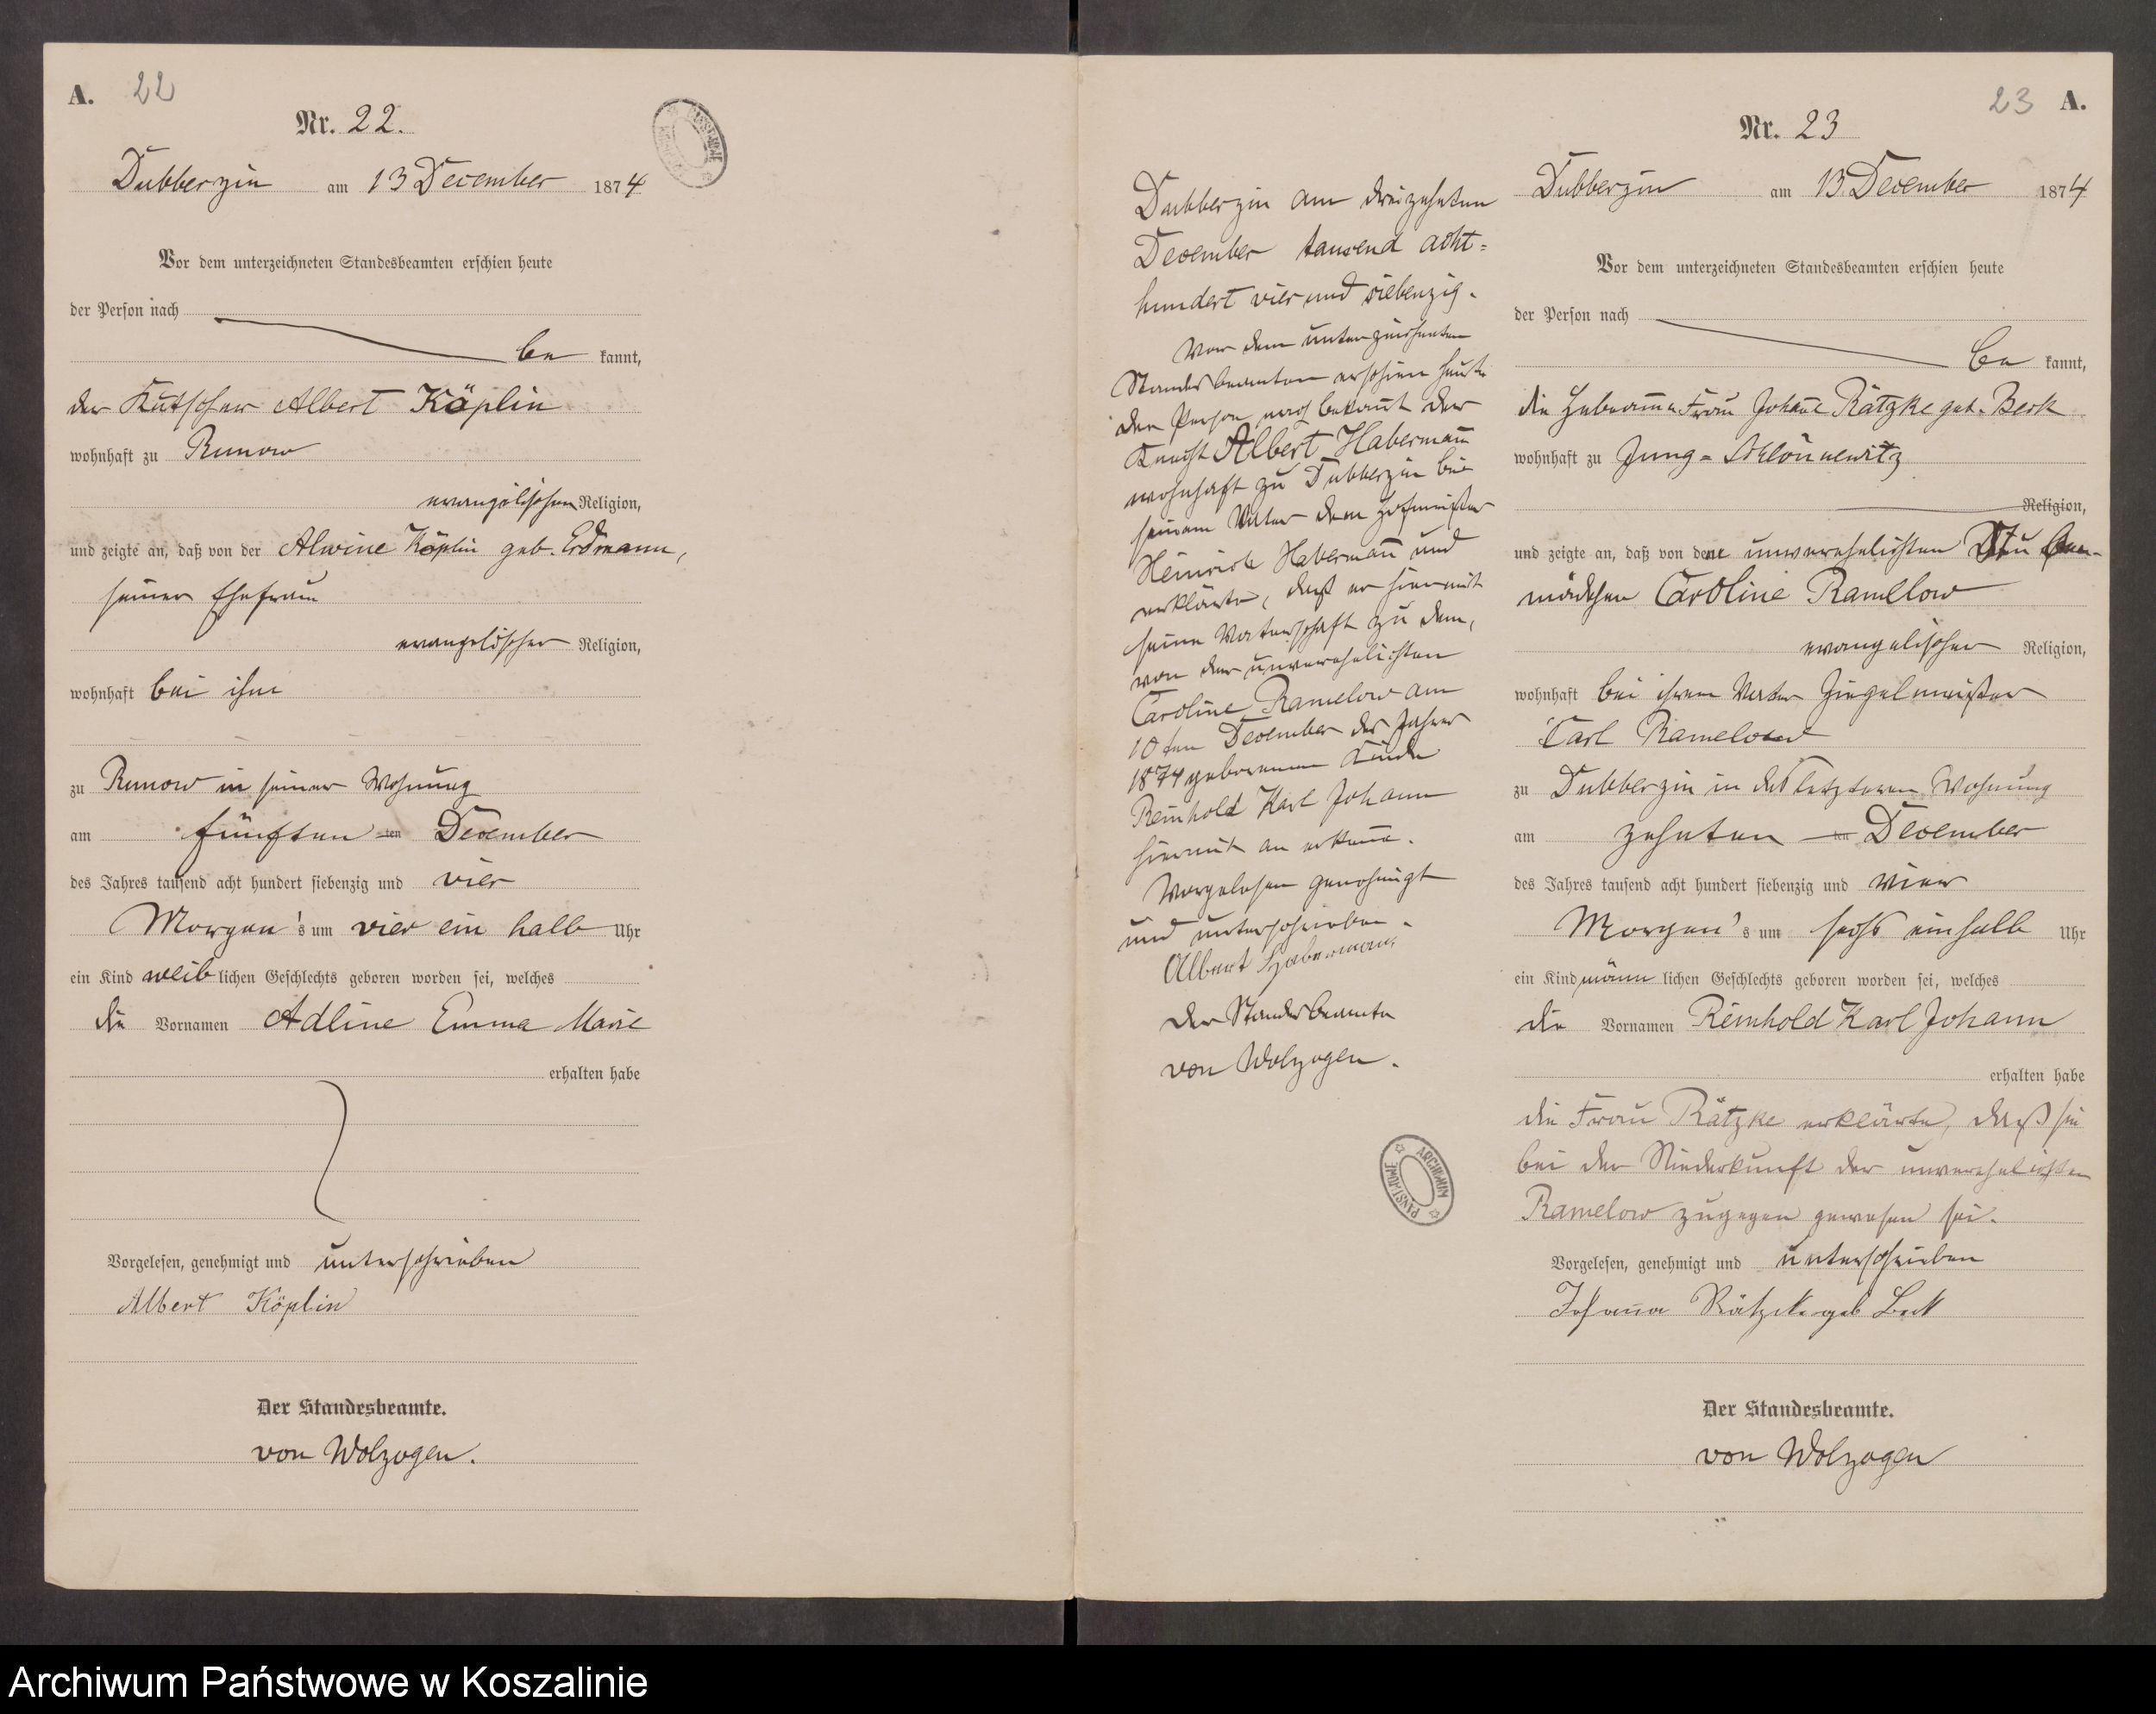 A. 22
Nr. 22.
Dubberzin am 13 December 1874
Vor dem unterzeichneten Standesbeamten erschien heute
der Person nach
be kannt,
der Kutscher Albert Köplin
wohnhaft zu Runow
evangelischen Religion,
und zeigte an, daß von der Alwine Köplin geb. Erdmann,
seiner Ehefrau
evangelischer Religion,
wohnhaft bei ihm
zu Runow in seiner Wohnung
am fünften ten December
des Jahres tausend acht hundert siebenzig und vier
Morgen's um vier ein halb Uhr
ein Kind weiblichen Geschlechts geboren worden sei, welches
die Vornamen Adline Emma Marie
erhalten habe
Vorgelesen, genehmigt und unterschrieben
Albert Köplin
Der Standesbeamte.
von Wolzogen.
Dubberzin am dreizehnten
December tausend acht-
hundert vier und siebenzig.
Vor dem unterzeichneten
Standesbeamten erschien heute
der Person nach bekannt der
Knecht Albert Habermann
wohnhaft zu Dubberzin bei
seinem Vater dem Hofmeister
Heinrich Habermann und
erklärte, daß er hiermit
seine Vaterschaft zu dem,
von der unverehelichten
Caroline Ramelow am
10ten December des Jahres
1874 geborenen Kinde
Reinhold Karl Johann
hiermit an erkenne.
Vorgelesen genehmigt
und unterschrieben.
Albert Habermann
Der Standesbeamte
von Wolzogen.
23 A.
Nr. 23
Dubberzin am 13 December 1874
Vor dem unterzeichneten Standesbeamten erschien heute
der Person nach
be kannt,
die Hebeamme Frau Johanne Rätzke geb. Beck
wohnhaft zu Jung-Schlönnewitz
Religion,
und zeigte an, daß von der unverehelichten Stuben-
mädchen Caroline Ramelow
evangelischer Religion,
wohnhaft bei ihrem Vater Ziegelmeister
Carl Ramelow
zu Dubberzin in des letzteren Wohnung
am zehnten ten December
des Jahres tausend acht hundert siebenzig und vier
Morgen's um sechs einhalb Uhr
ein Kind männlichen Geschlechts geboren worden sei, welches
die Vornamen Reinhold Karl Johann
erhalten habe
die Frau Rätzke erklärte, daß sie
bei der Niederkunft der unverehelichten
Ramelow zugegen gewesen sei.
Vorgelesen, genehmigt und unterschrieben
Johanna Rätzke geb Beck
Der Standesbeamte.
von Wolzogen
ARCHIWUM PAŃSTWOWE
Archiwum Państwowe w Koszalinie